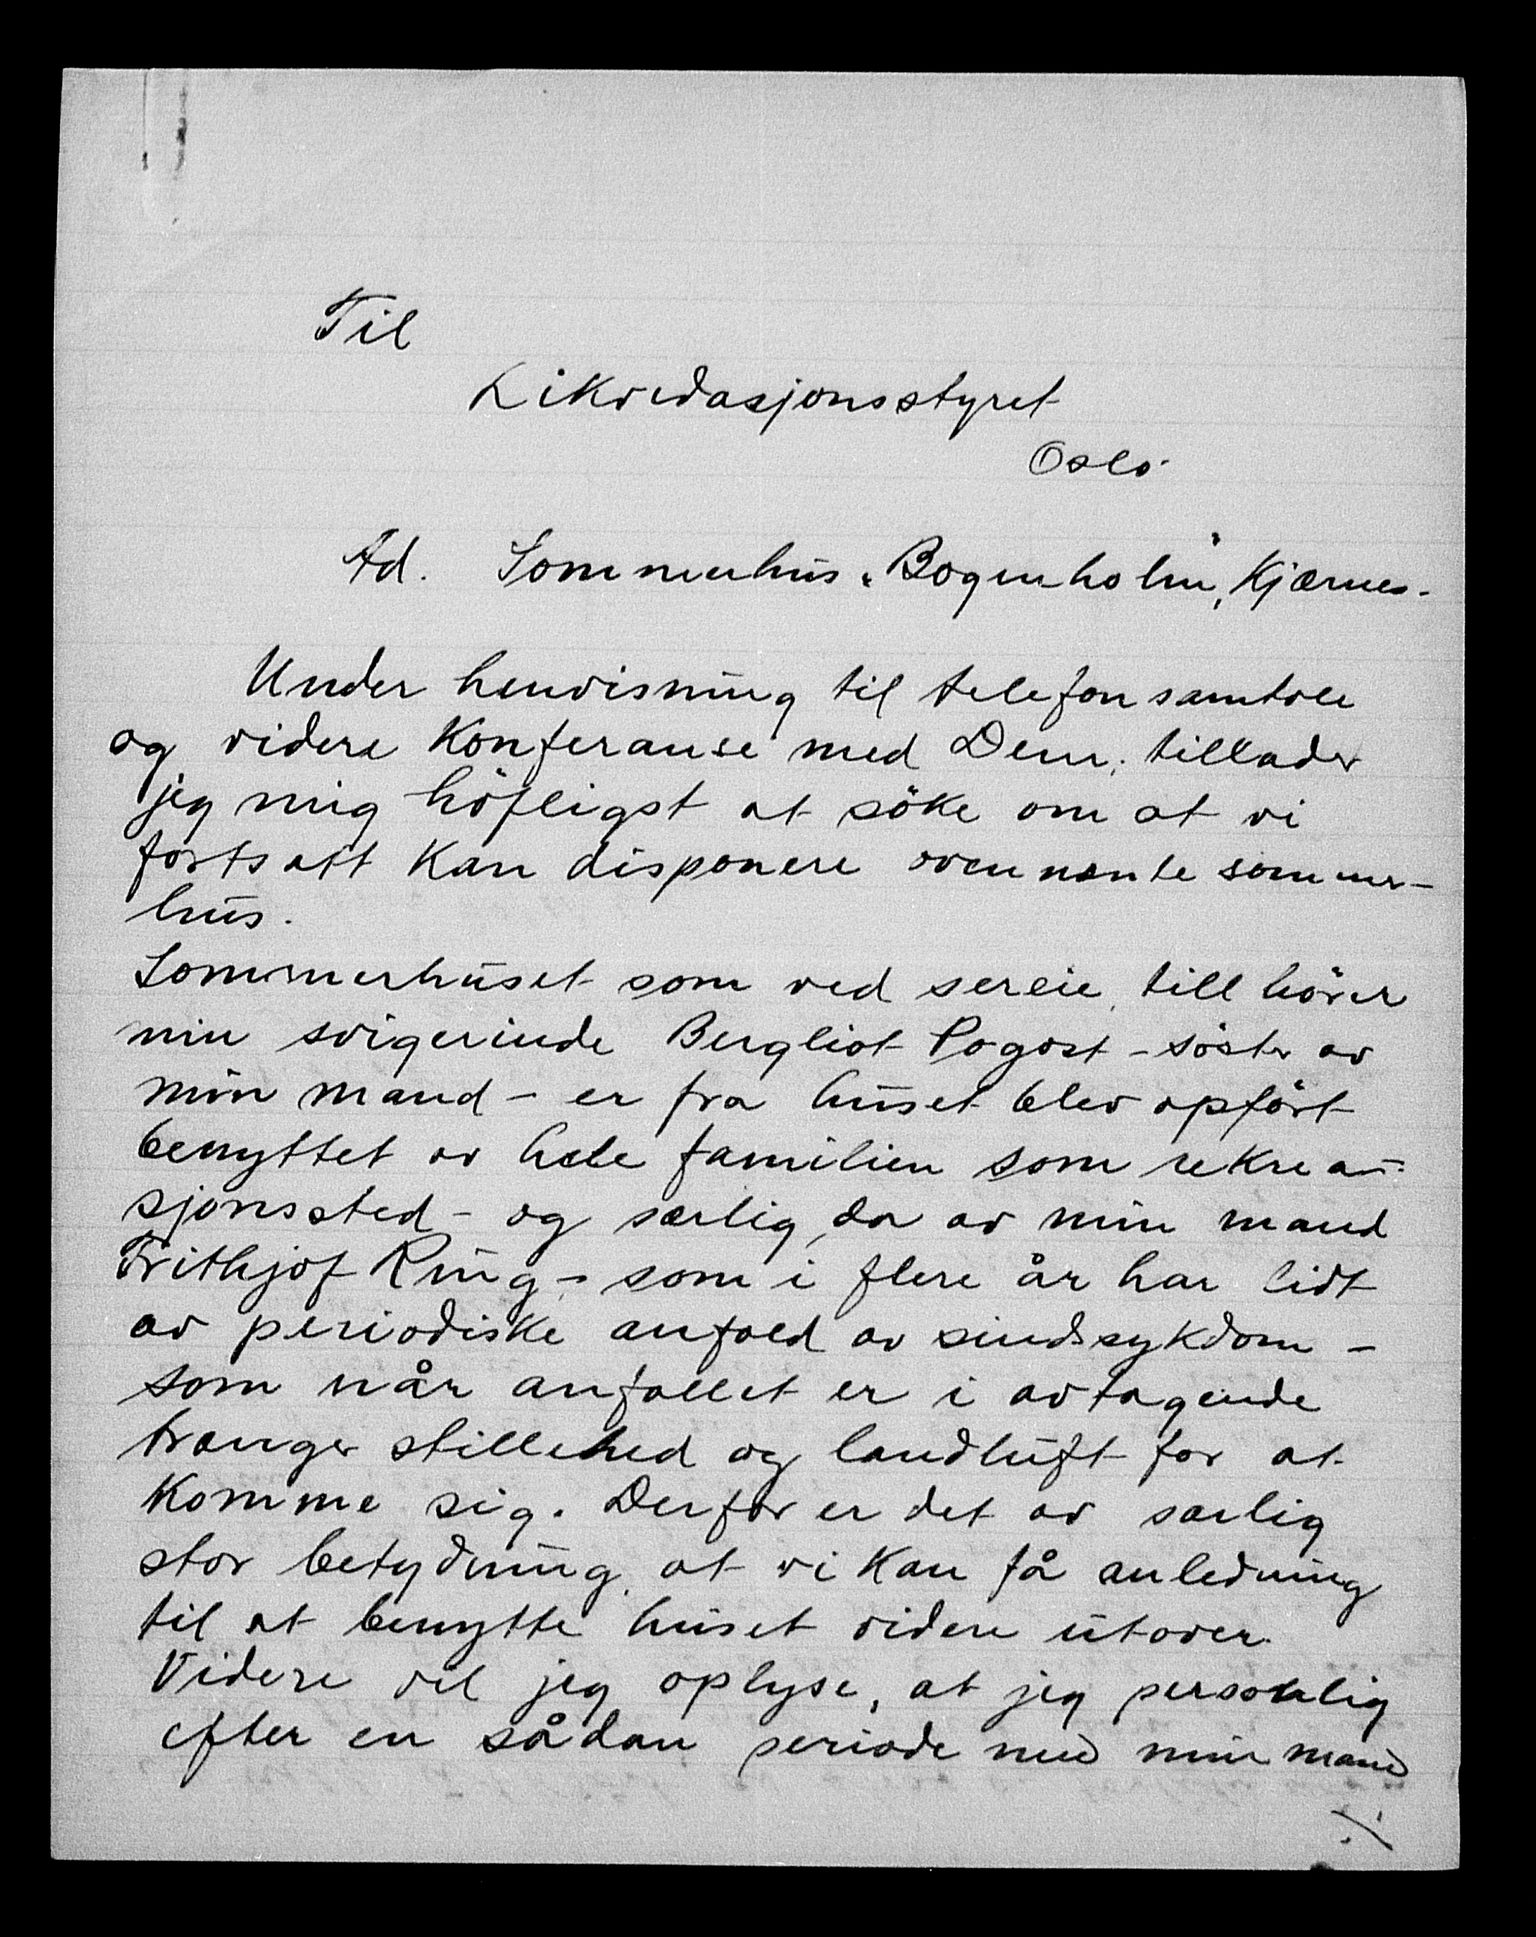 Til
Likvidasjonsstyret
Oslo.
Ad. Sommerhus „Bogenholm", Kjærnes.
Under henvisning til telefonsamtale
og videre konferanse med Dem, tillader
jeg mig höfligst at söke om at vi
fortsatt kan disponere ovennevnte sommer-
hus.
Sommerhuset som ved sereie tillhörer
min svigerinde Bergliot Pogost - söster av
min mand - er fra huset blev opfört
benyttet av hele familien som rekrea-
sjonssted - og særlig da av min mand
Frithjof Ring - som i flere år har lidt
av periodiske anfald av sindssykdom -
som når anfallet er i avtagende
trænger stillehed og landluft for at
komme sig. Derfor er det av særlig
stor betydning, at vi kan få anledning
til at benytte huset videre utover.
Videre vil jeg oplyse, at jeg personlig
efter en sådan periode med min mand
./.